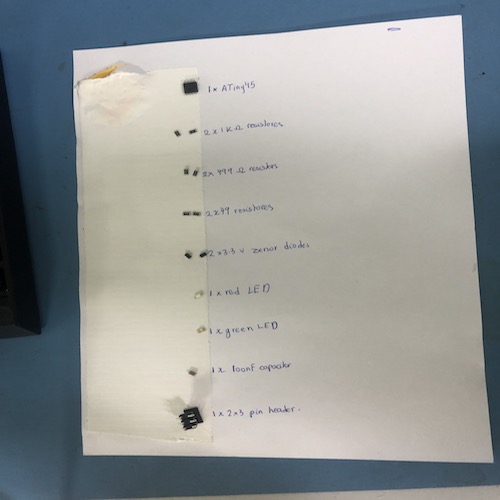 1x ATiny45
2x1KΩ resistores
2x 499 Ω resistors
2x49 resistores
2x3.3 v zenor diodes
1x red LED
1x green LED
1x 100nF capacitor
1x 2x3 pin header.